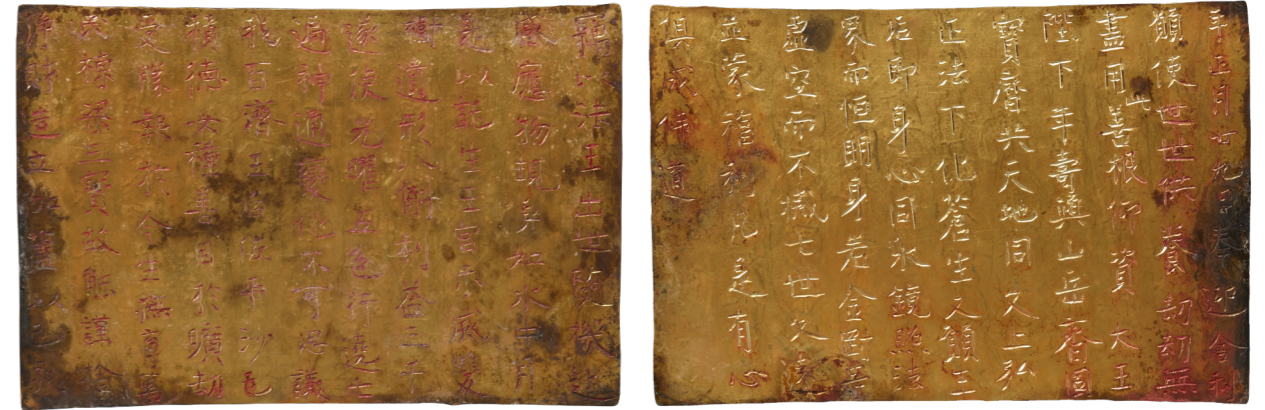 竊以法王出世隨機赴
感應物現身如水中月
是以託生王宮示滅雙
樹遺形八斛利益三千
遂使光曜五色行遶七
遍神通變化不可思議
我百濟王后佐平沙乇
積德女種善因於曠劫
受勝報於今生撫育萬
民棟梁三寶故能謹捨
淨財造立伽藍以己亥
年正月卄九日奉迎舍利
願使世世供養劫劫無
盡用此善根仰資 大王
陛下年壽與山岳齊固
寶曆共天地同久上弘
正法下化蒼生又願王
后即身心同水鏡照法
界而恒明身若金剛等
虛空而不滅七世久遠
並蒙福利凡是有心
俱成佛道